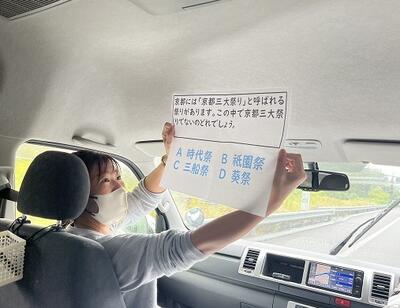 京都には「京都三大祭り」と呼ばれる
祭りがあります。この中で京都三大祭
りでないのどれでしょう。
A 時代祭 B 祇園祭
C 三船祭 D 葵祭